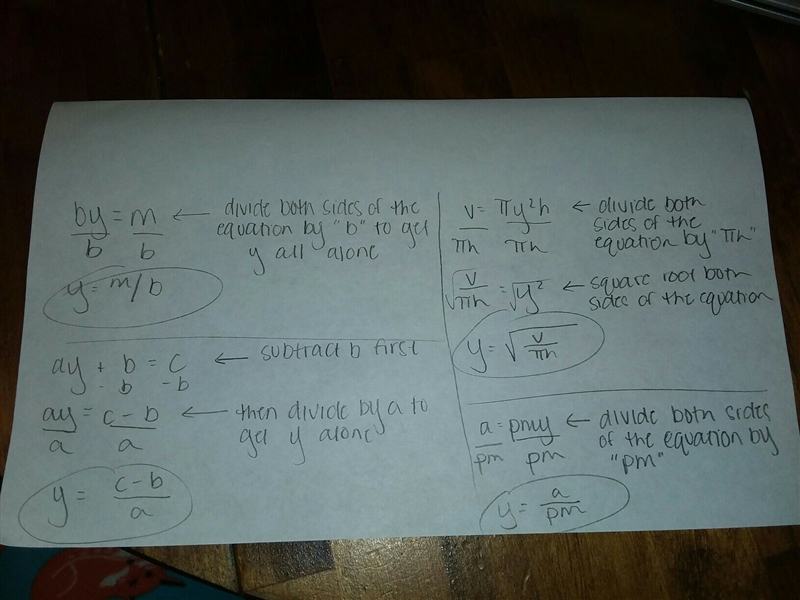 by = m ← divide both sides of the
b b equation by "b" to get
y all alone
y = m/b
ay + b = c ← subtract b first
- b -b
ay = c - b ← then divide by a to
a a get y alone
y = c - b
a
v = πy²h ← divide both
πh πh sides of the
equation by "πh"
√v/πh = √y² ← square root both
sides of the equation
y = √v/πh
a = pmy ← divide both sides
pm pm of the equation by
"pm"
y = a
pm